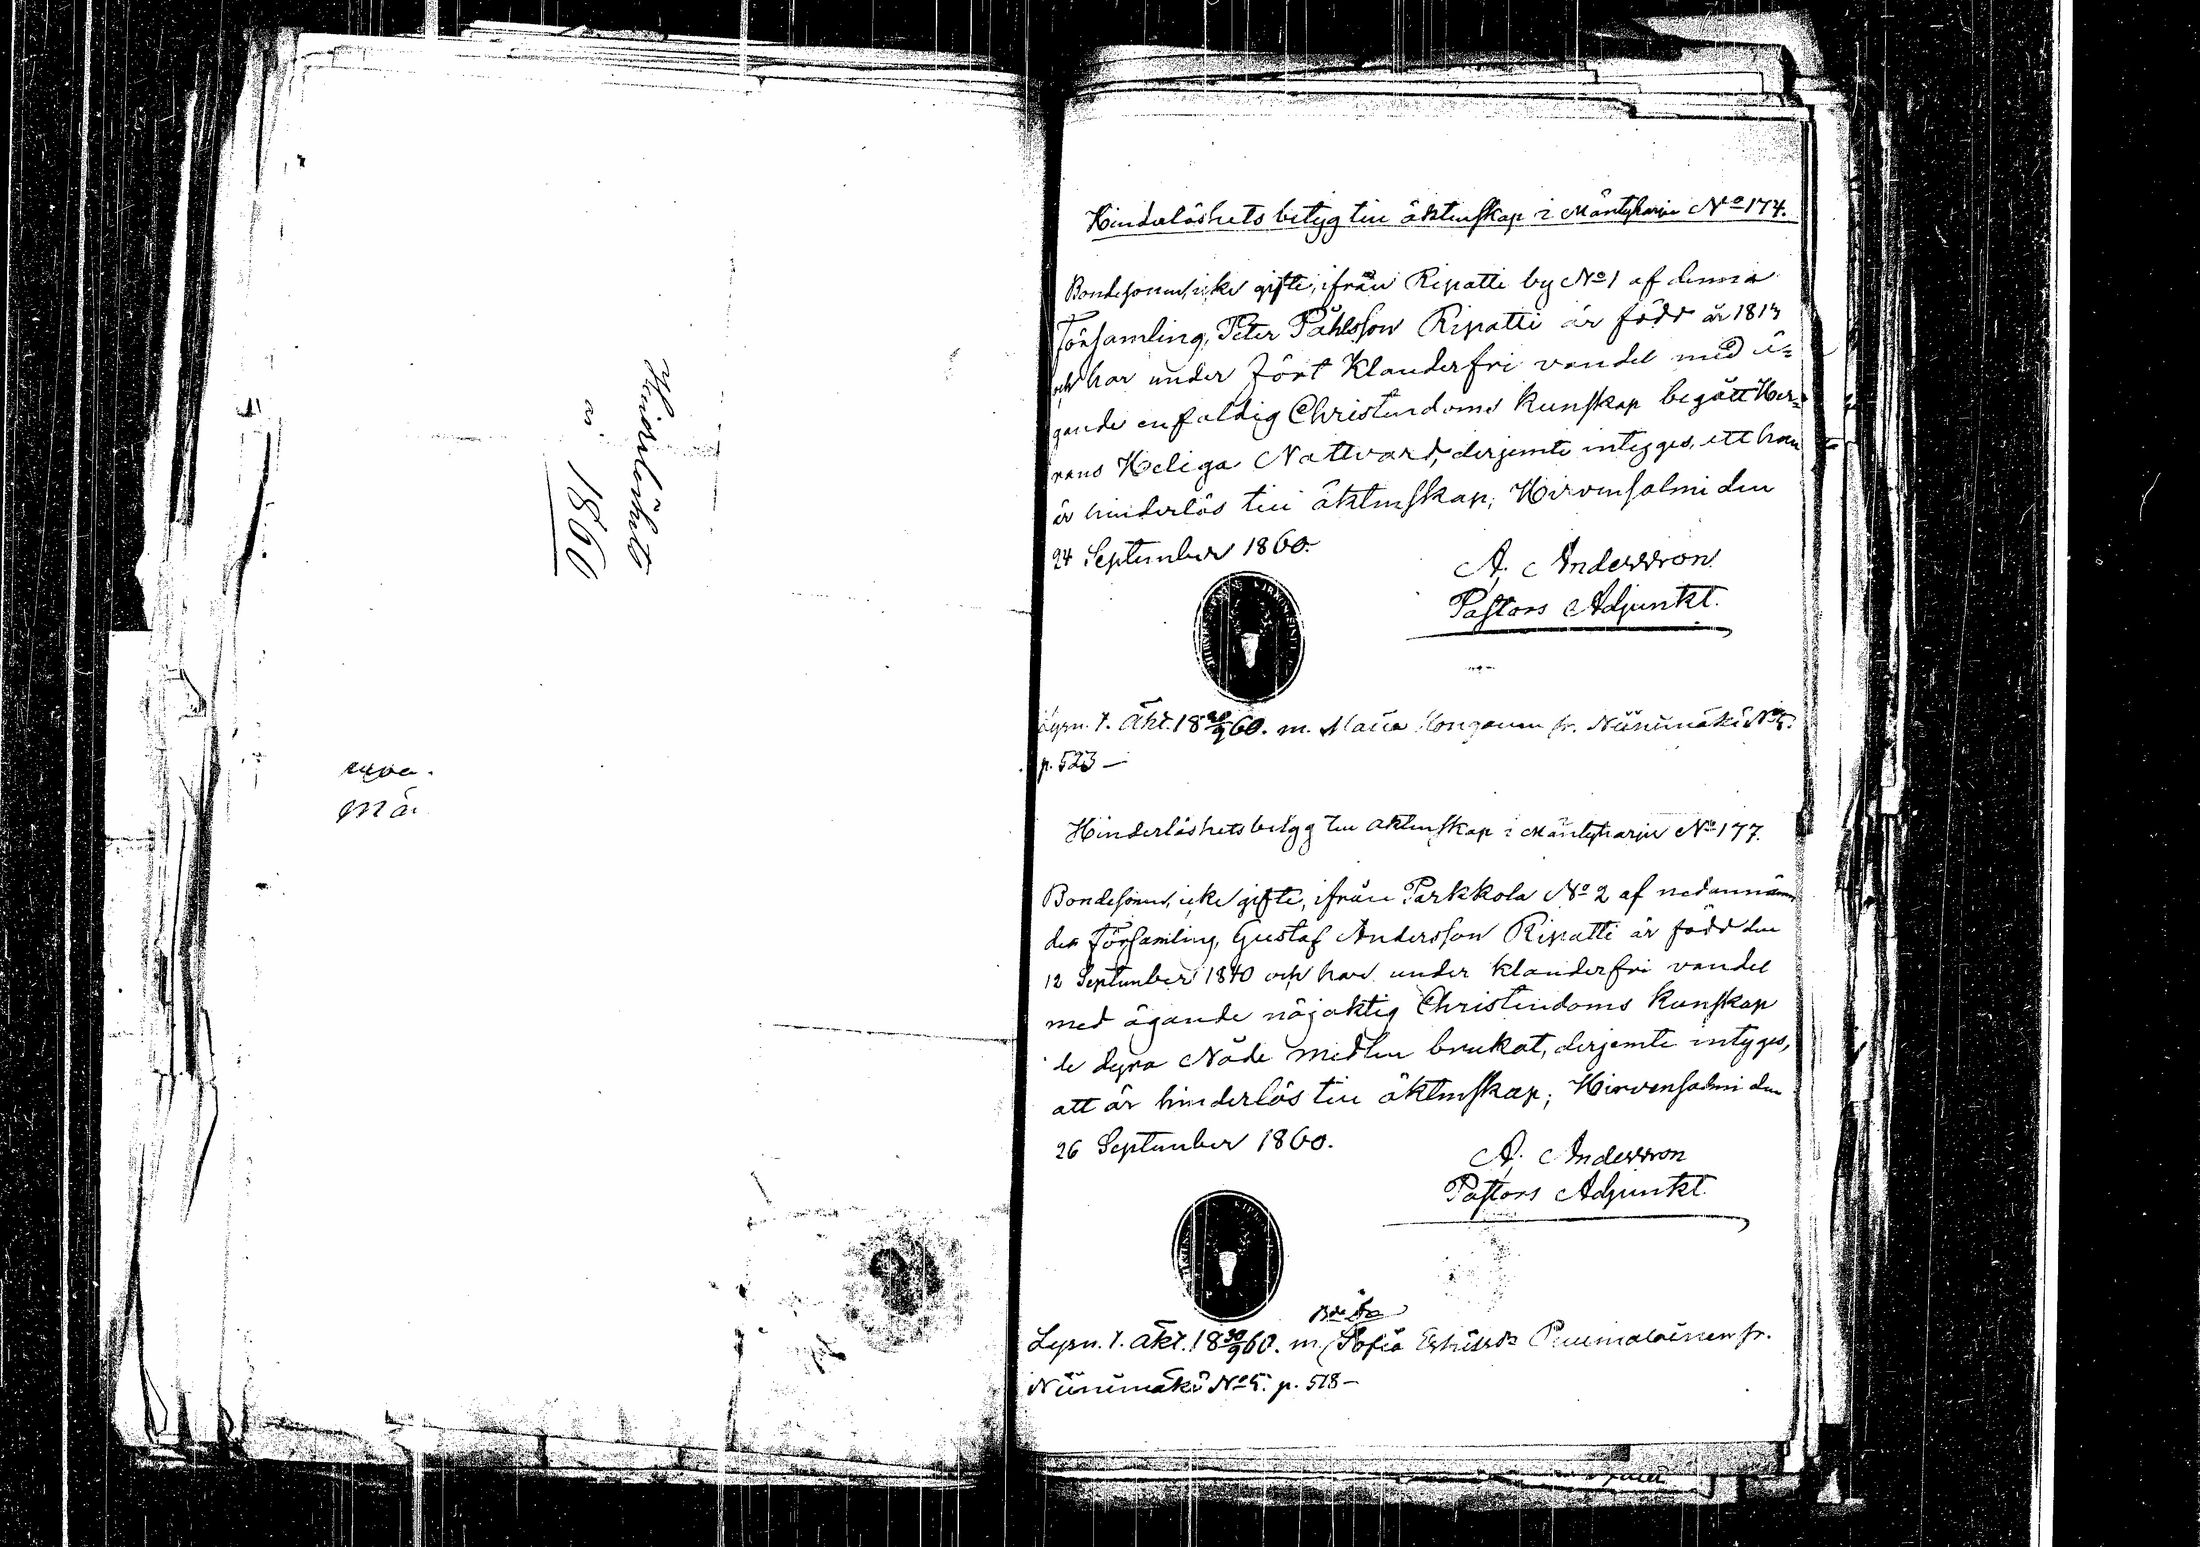 Hinderlöshets
år 1860
Hinderlöshets betyg till äktenskap i Mäntyharju No 174.
Bondesonen, icke gifte, ifrån Ripatti by No 1 af denna
Församling, Peter Påhlsson Ripatti är född år 1813
och har under fört klanderfri vandel med ä=
gande enfaldig Christendoms kunskap begått Her=
rans Heliga Nattvard, derjemte intygges, att han
är hinderlös till äktenskap; Hirvensalmi den
24 September 1860.
A. Andersson
Pastors Adjunkt.
Lysn. t. äkt. 18 30/9 60. m. Maria fr. Niinimäki No 5.
p. 523 —
Hinderlöshets betyg till äktenskap i Mäntyharju No 177.
Bondesonen, icke gifte, ifrån Parkkola No 2 af nedannämn
der Församling, Gustaf Andersson Ripatti är född den
12 September 1840 och har under klanderfri vandel
med ägande nöjaktig Christendoms kunskap
de dyra Nåde medlen brukat, derjemte intyges,
att är hinderlös till äktenskap; Hirvensalmi den
26 September 1860.
A. Andersson
Pastors Adjunkt.
Lysn. t. äkt. 18 30/9 60. m. Sofia Puumalainen fr.
Niinimäki No 5. p. 518 —